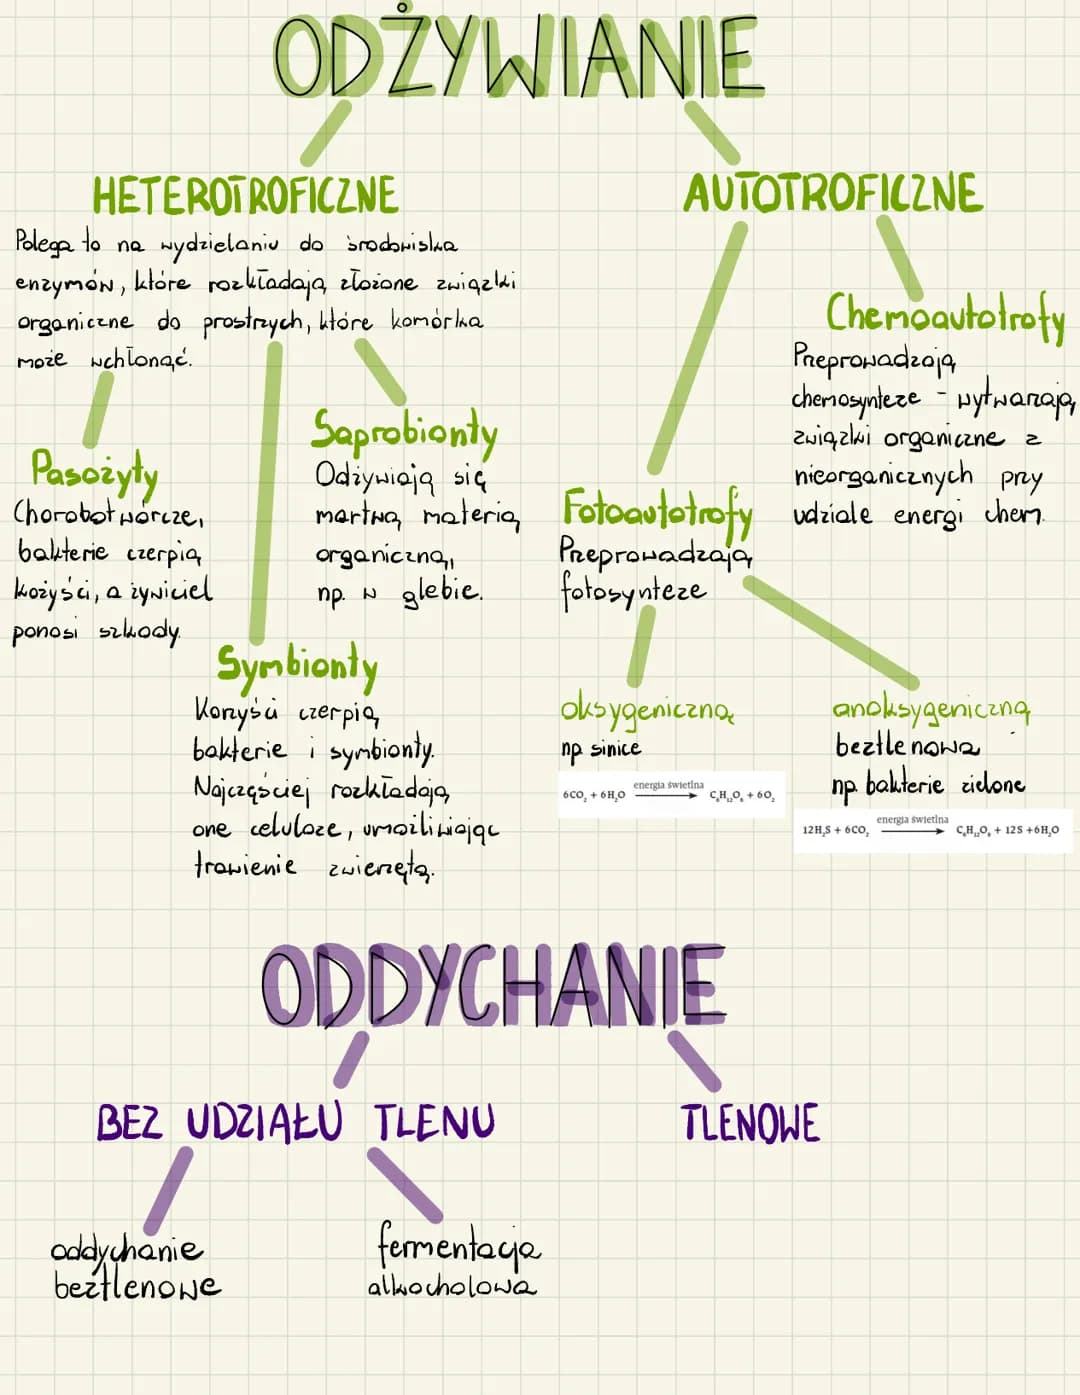 ODŻYWIANIE
HETEROTROFICZNE
Polega to na wydzielaniu do środowiska
enzymów, które rozkładają złożone związki
organiczne do prostrzych, które komórka
może wchłonąć.
Pasożyty
Chorobotwórcze,
bakterie czerpią
kożyści, a żywiciel
ponosi szkody.
Saprobionty
Odżywiają się
martwą materią
organiczną,
np. w glebie.
Symbionty
Korzyści czerpią
bakterie i symbionty.
Najczęściej rozkładają
one celuloze, umożliwiając
trawienie zwierzętą.
AUTOTROFICZNE
Chemoautotrofy
Preprowadzają
chemosynteze - wytwarzają
związki organiczne z
nieorganicznych przy
udziale energi chem.
Fotoautotrofy
Preprowadzają
fotosynteze
oksygeniczną
np. sinice
6CO₂ + 6H₂O energia świetlna → C₆H₁₂O₆ + 6O₂
anoksygeniczną
beztlenowa
np. bakterie zielone
12H₂S + 6CO₂ energia świetlna → C₆H₁₂O₆ + 12S +6H₂O
ODDYCHANIE
BEZ UDZIAŁU TLENU
TLENOWE
oddychanie
beztlenowe
fermentacja
alkocholowa